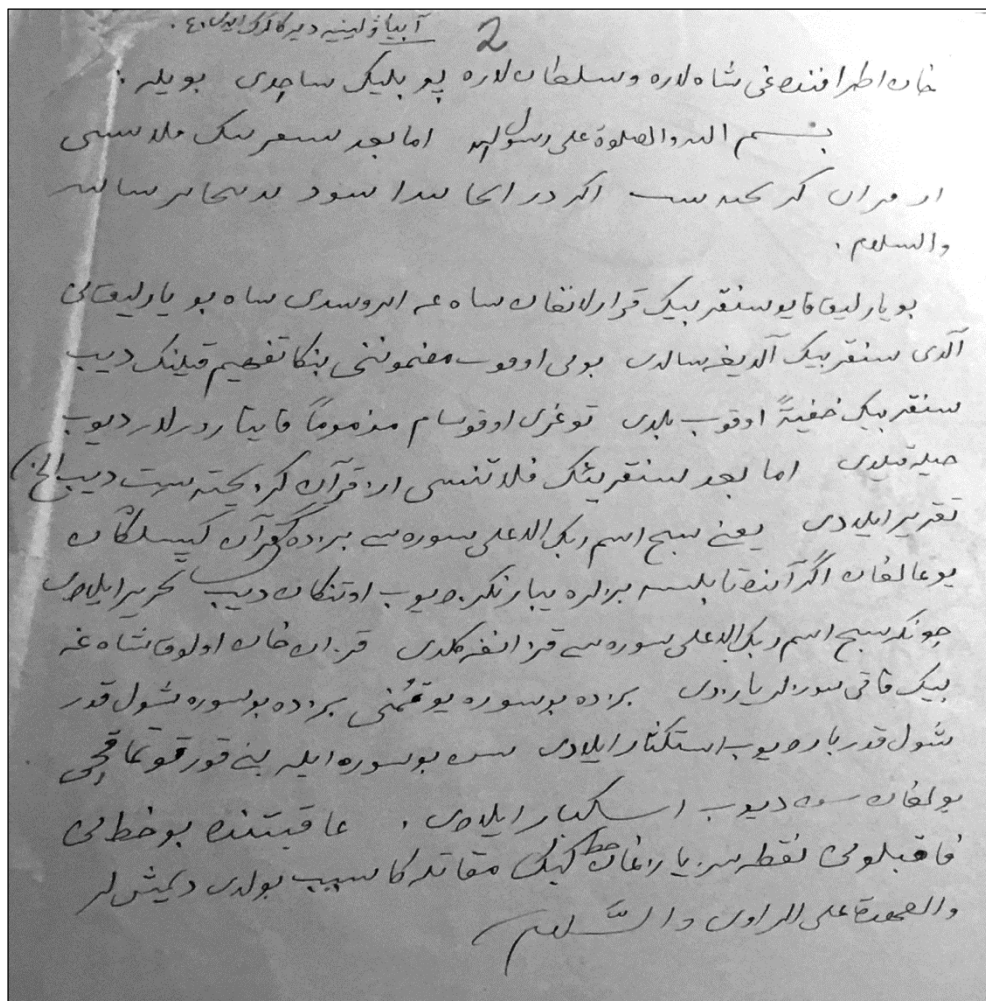 2
خان اطرافنده‌غی شاه‌لاره وسلطان‌لاره پوبلیک ساچدی بویله :
بسم الله والصلوة علی رسول الله امابعد سنقر بیک فلانسی
از قران کریخته ست اکر در انجا پیدا شود
والسلام .
بو یارلیق قایو سنقر بیک قرارلانغان شاه غه ایروسدی شاه بو یارلیقنی
آلدی سنقر بیک آلدیغه سالدی بونی اوقوب مضموننی بنکا تفهیم قیلینک دیب
سنقر بیک خفیةً اوقوب بلدی توغری اوقوسام مذموماً قایتارورلار دیوب
حیله قیلدی امابعد سنقر بیک فلانسی از قرآن کریخته ست دیب الخ)
تقریر ایلادی یعنی سبح اسم ربک الاعلی سوره سی بزده‌گی قرآن
یوغالغان اگر آنده تابلسه بزلره یبارنکز دیوب اوتنکان دیب تحریر ایلادی
چونکه سبح اسم ربک الاعلی سوره سی قزانغه کلدی قزان خان اولوق شاه غه
بیک قاتی سوزلر یازدی بزده بو سوره یوقمنی بزده بو سوره شول قدر
شول قدر بار دیوب استکثار ایلادی سن بو سوره ایله بنی قورقوتماقچی
بولغان سن دیوب استکبار ایلادی . عاقبتنده بو خطنی
نقطه سز یازغان خط کبک مقاتله کا سبب بولدی دیمیش لر
والعهدة علی الراوی والسّلام